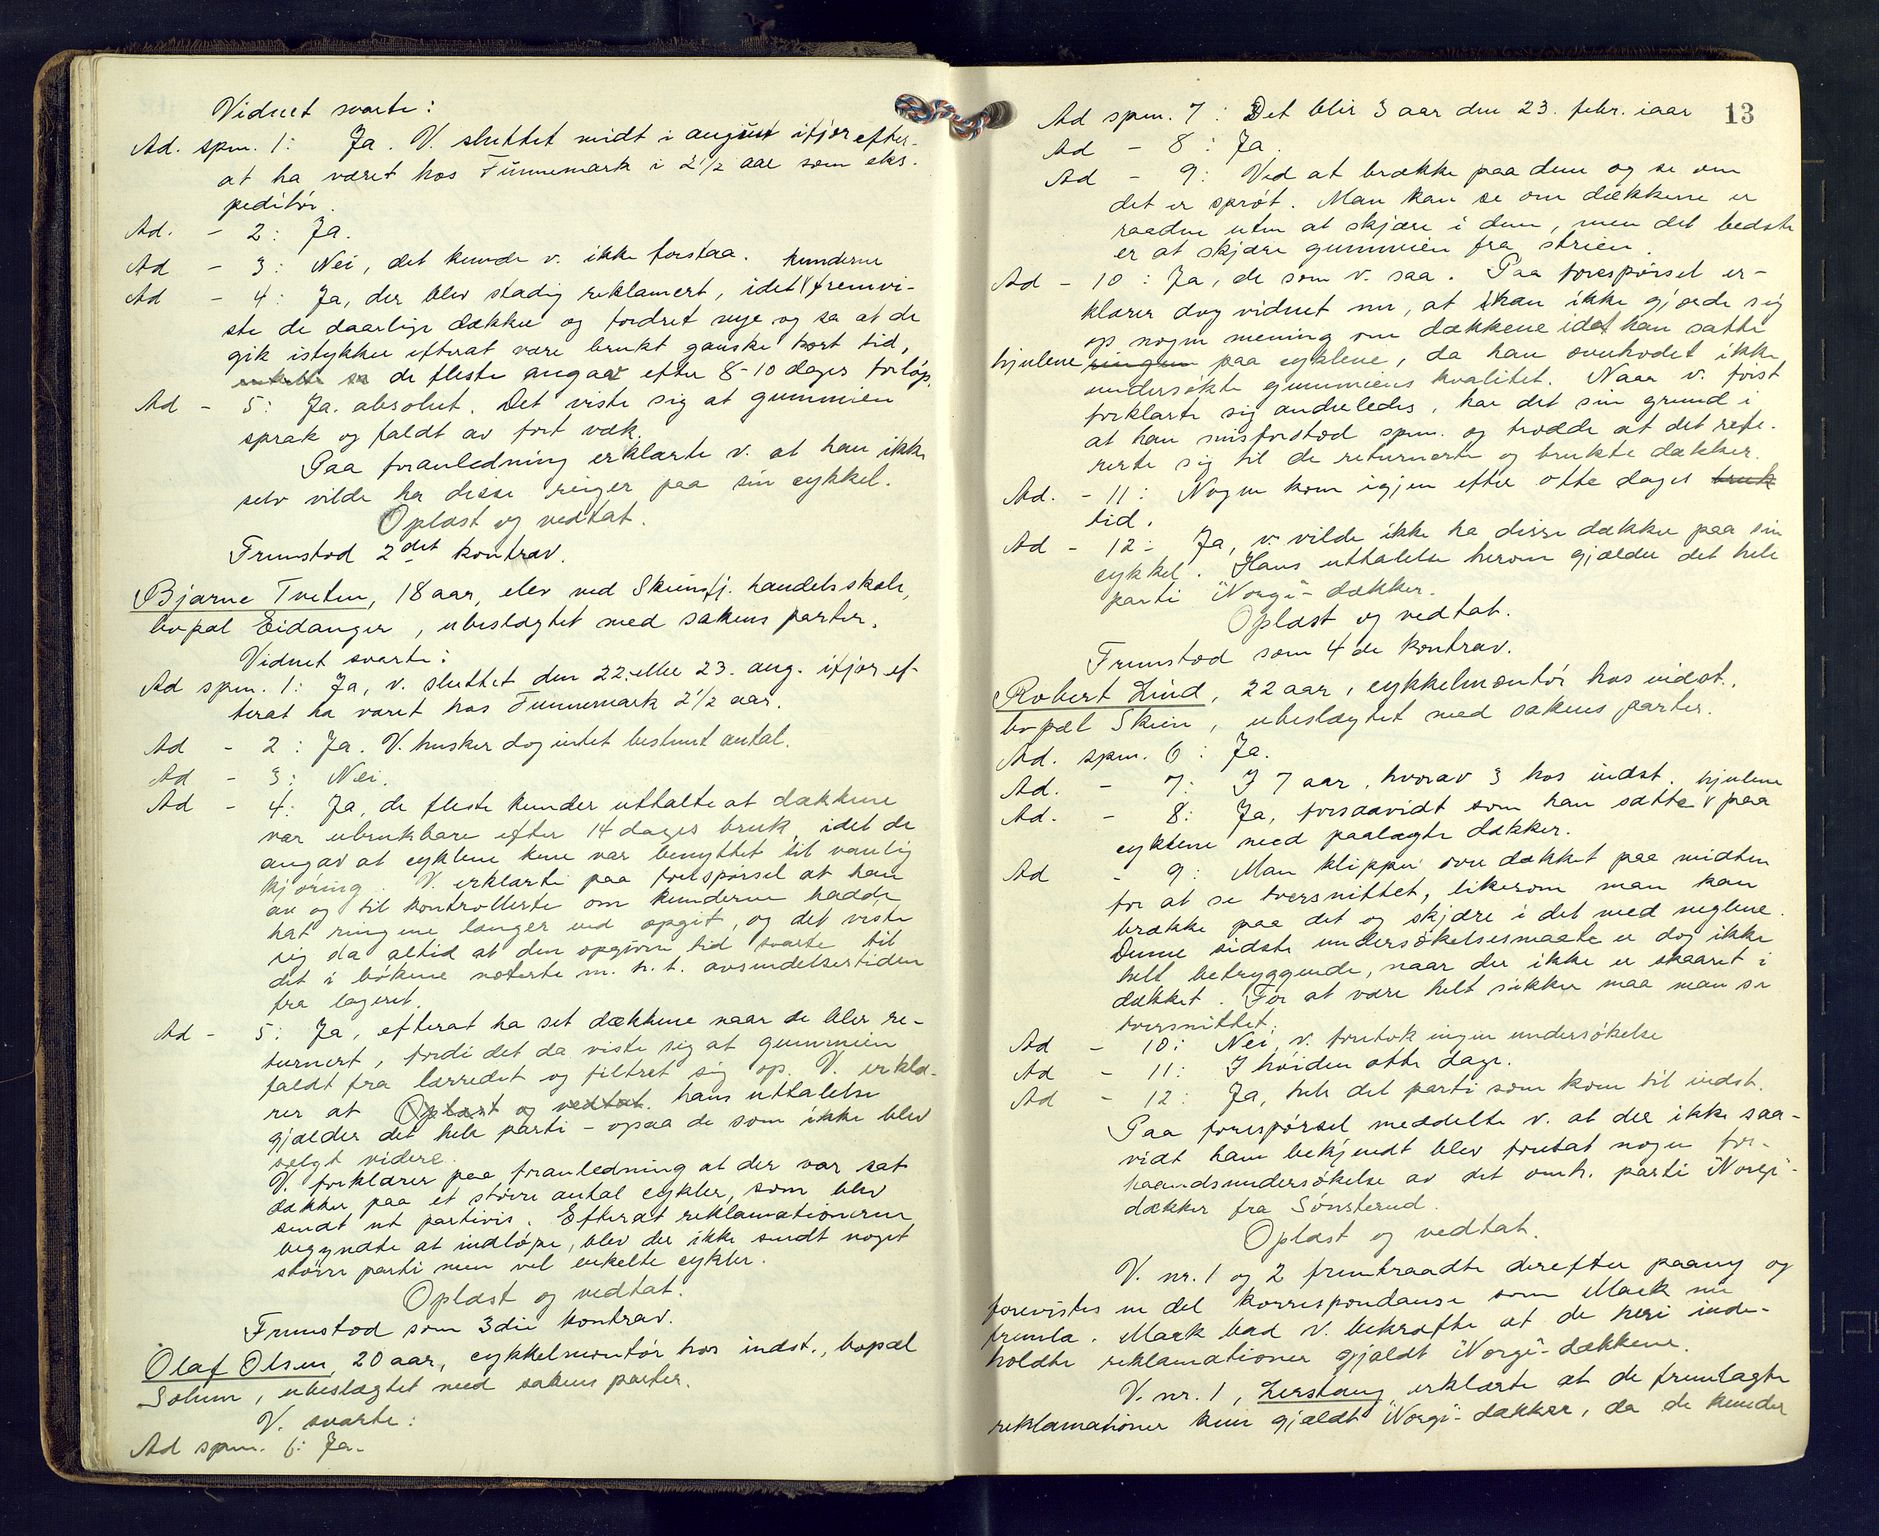 Vidnet svarte:
Ad. spm. 1: Ja. V. sluttet midt i august ifjor efter-
at ha været hos Funnemark i 2 1/2 aar som eks-
peditör.
Ad. - 2: Ja.
Ad - 3: Nei, det kunde v. ikke forstaa. kunderne
Ad - 4: Ja, der blev stadig reklamert, idet fremvi-
ste de daarlige dækker og fordret nye og sa at de
gik istykker efterat være brukt ganske kort tid,
de fleste angav efter 8-10 dages forløp.
Ad - 5: Ja. absolut. Det viste sig at gummien
sprak og faldt av fort væk.
Paa foranledning erklærte v. at han ikke
selv vilde ha disse ringer paa sin cykkel.
Oplæst og vedtat.
Fremstod 2det kontrav.
Bjarne Tveten, 18 aar, elev ved Skiensfj. handelsskole,
bopæl Eidanger, ubeslægtet med sakens parter.
Vidnet svarte:
Ad spm. 1: Ja, v. sluttet den 22. eller 23. aug. ifjor ef-
terat ha været hos Funnemark 2 1/2 aar.
Ad - 2: Ja. V. husker dog intet bestemt antal.
Ad - 3: Nei.
Ad - 4: Ja, de fleste kunder uttalte at dækkene
var ubrukbare efter 14 dages bruk, idet de
angav at cyklene kun var benyttet til vanlig
kjøring. V. erklærte paa forespørsel at han
av og til kontrollerte om kunderne hadde
hat ringene længer end opgit, og det viste
sig da altid at den opgivne tid svarte til
det i bøkene noterte m. h. t. avsendelsestiden
fra lageret.
Ad - 5: Ja, efterat ha set dækkene naar de blev re-
turnert, fordi det da viste sig at gummien
faldt fra lærredet og filtret sig op. V. erklæ-
rer at Oplæst og vedtat. hans uttalelse
gjælder det hele parti - ogsaa de som ikke blev
solgt videre.
V. forklarer paa foranledning at der var sat
dækker paa et større antal cykler, som blev
sendt ut partivis. Efterat reklamationerne
begyndte at indløpe, blev der ikke sendt noget
større parti men vel enkelte cykler.
Oplæst og vedtat.
Fremstod som 3die kontrav.
Olaf Olsen, 20 aar, cykkelmontör hos indst., bopæl
Solum, ubeslægtet med sakens parter.
V. svarte:
Ad spm. 6: Ja.
13
Ad spm. 7: Det blir 3 aar den 23. febr. iaar
Ad - 8: Ja.
Ad - 9: Ved at brække paa dem og se om
det er sprøt. Man kan se om dækkene er
raadne uten at skjære i dem, men det bedste
er at skjære gummien fra strien.
Ad - 10: Ja, de som v. saa. Paa forespørsel er-
klærer dog vidnet nu, at han ikke gjorde sig
op nogen mening om dækkene idet han satte
hjulene ringen paa cyklene, da han overhodet ikke
undersøkte gummiens kvalitet. Naar v. først
forklarte sig anderledes, har det sin grund i
at han misforstod spm. og trodde at det refe-
rerte sig til de returnerte og brukte dækker.
Ad. - 11: Nogen kom igjen efter otte dages bruk
tid.
Ad - 12: Ja, v. vilde ikke ha disse dækker paa sin
cykkel. Hans uttalelse herom gjælder det hele
parti "Norgi"-dækker.
Oplæst og vedtat.
Fremstod som 4de kontrav.
Robert Lind, 22 aar, cykkelmontör hos indst.,
bopæl Skien, ubeslægtet med sakens parter.
Ad. spm. 6: Ja.
Ad. - 7: I 7 aar, hvorav 3 hos indst. hjulene
Ad. - 8: Ja, forsaavidt som han satte paa
cyklene med paalagte dækker.
Ad - 9: Man klipper over dækket paa midten
for at se tversnittet, likesom man kan
brække paa det og skjære i det med neglene.
Denne sidste undersøkelsesmaate er dog ikke
helt betryggende, naar der ikke er skaaret i
dækket. For at være helt sikker maa man se
tversnittet.
Ad - 10: Nei, v. foretok ingen undersøkelse
Ad - 11: I høiden otte dage.
Ad - 12: Ja, hele det parti som kom til indst.
Paa forespørsel meddelte v. at der ikke saa-
vidt ham bekjendt blev foretat nogen for-
haandsundersøkelse av det omh. parti "Norgi"-
dækker fra Sønsterud.
Oplæst og vedtat.
V. nr. 1 og 2 fremtraadte derefter paany og
forevistes en del korrespondanse som Mark nu
fremla. Mark bad v. bekræfte at de heri inde-
holdte reklamationer gjaldt "Norgi"-dækkene.
V. nr. 1, Zerstang erklærte at de fremlagte
reklamationer kun gjaldt "Norgi"-dækker, da de kunder